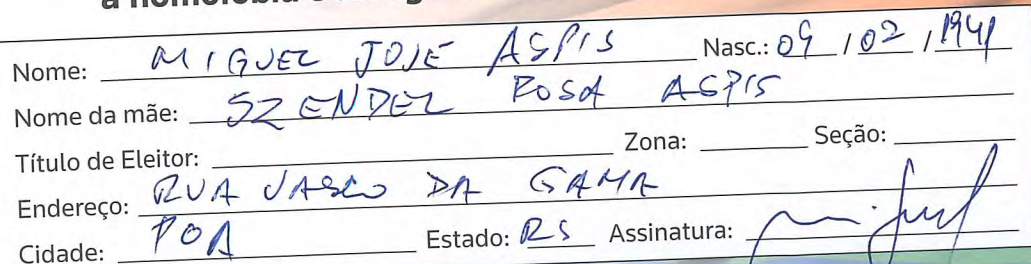 a homofobia
Nome: MIGUEL JOSE ASPIS Nasc.: 09 / 02 / 1941
Nome da mãe: SZENDEL ROSA ASPIS
Título de Eleitor: Zona: Seção:
Endereço: RUA VASCO DA GAMA
Cidade: POA Estado: RS Assinatura: